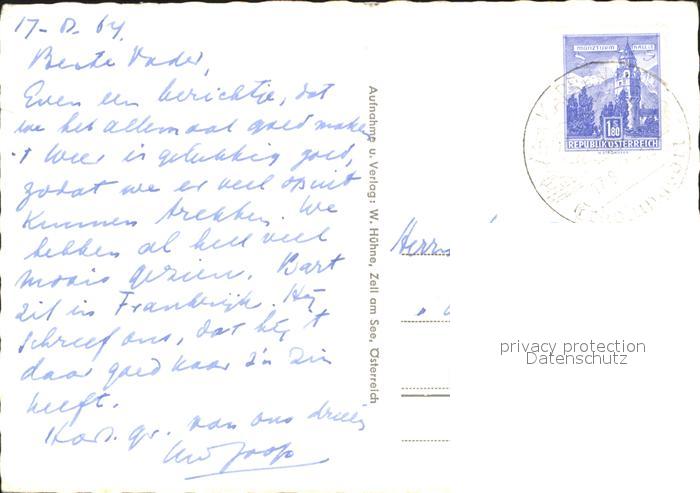 17-8. 64.
Beste Vader,
Even een berichtje, dat
we het allemaal goed maken
't Weer is gelukkig goed,
zodat we er veel op uit
kunnen trekken. We
hebben al heel veel
moois gezien. Bart
zit in Frankrijk. Hij
schreef ons, dat hij 't
daar goed naar z'n zin
heeft.
Hart. gr. van ons drieën
Joop
Aufnahme u. Verlag: W. Hühne, Zell am See, Österreich
MÜNZTURM HALL i.T.
1.80
S
REPUBLIK ÖSTERREICH
Herrn
privacy protection
Datenschutz